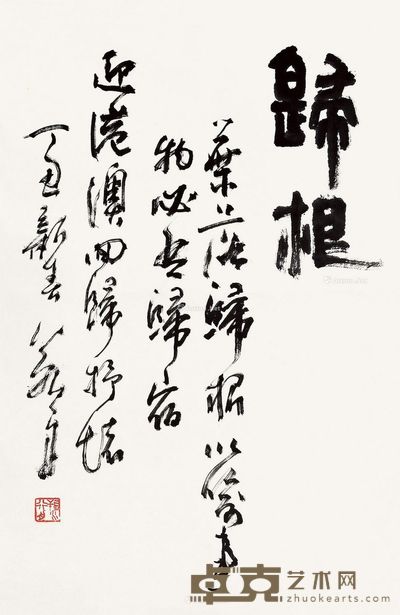 歸根
葉落歸根以喻事
物必有歸宿
迎港澳回歸抒懷
丁丑新春
卓克艺术网
zhuokearts.com